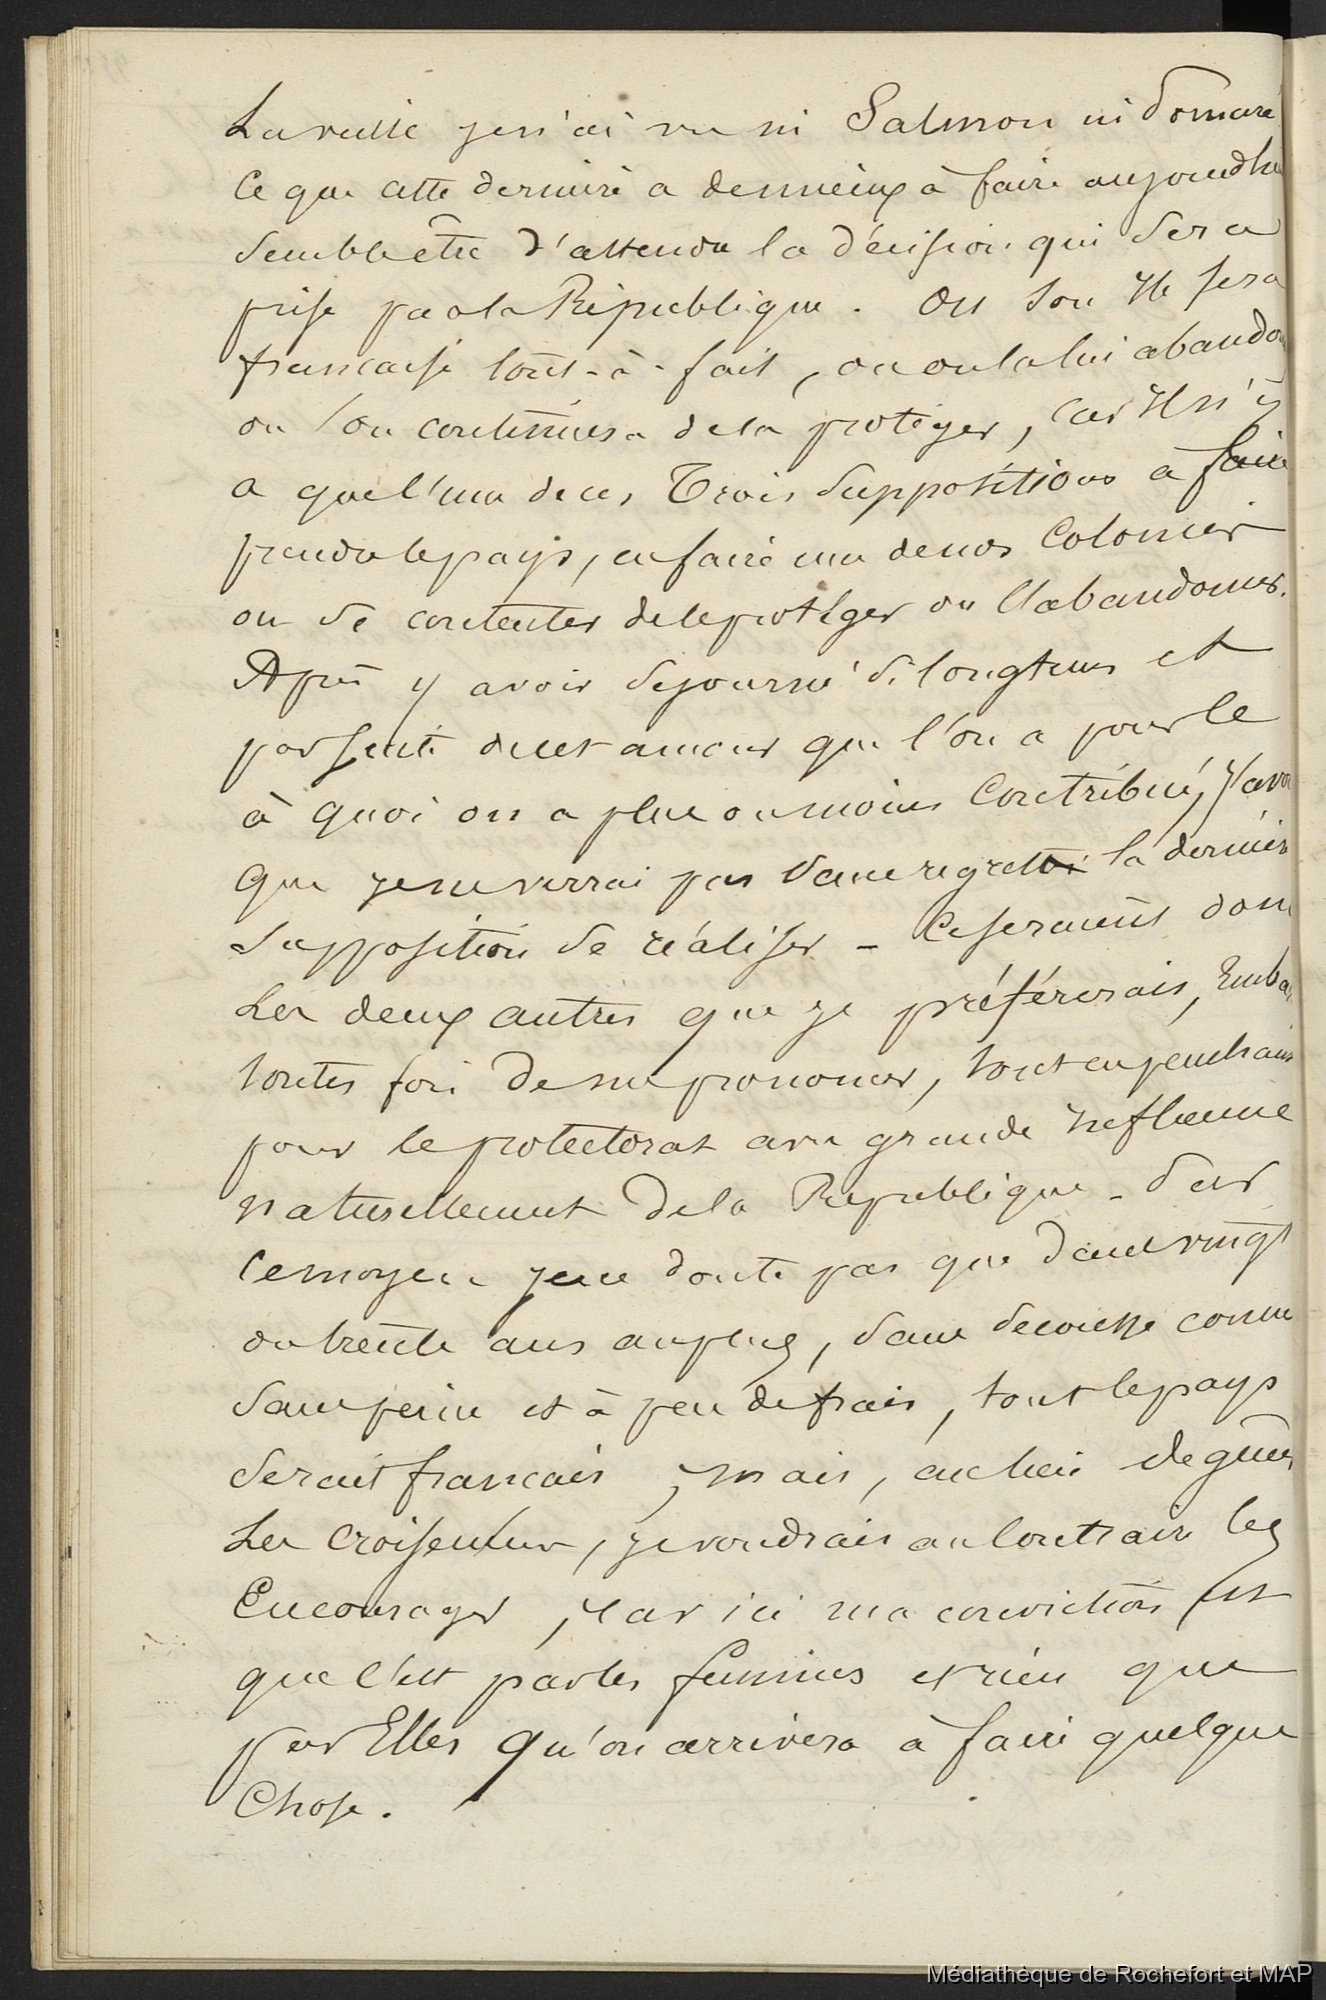 La veille je n'ai vu ni Salmon ni Pomaré
Ce que cette dernière a de mieux à faire aujourdhu
semble être d'attendre la décision qui sera
prise par la République. Ou son Ile sera
française tout-à-fait, ou on la lui abandon
ou l'on continuera de la protéger, car Il n'y
a que l'une de ces Trois suppositions à faire
prendre le pays, en faire une de nos Colonies
ou se contenter de le protéger ou l'abandonner.
Après y avoir séjourné si longtems et
par suite de cet amour que l'on a pour le
à quoi on a plus ou moins Contribué, J'avo
que je ne verrai pas sans regrets la dernièr
supposition se réaliser - Ce seraient donc
Les deux autres que je préférerais, Emba
toutes fois de me prononcer, tout en penchant
pour le protectorat avec grande Influence
naturellement de la République - Par
ce moyen je ne doute pas que dans vingt
ou trente ans au plus, sans secousse comme
sans peine et à peu de frais, tout le pays
serait français, mais, au lieu de gêner
Les croiseurs, je voudrais au Contraire les
Encourager, car ici ma conviction est
que c'est par les femmes et rien que
par Elles qu'on arrivera à faire quelque
Chose.
Médiathèque de Rochefort et MAP